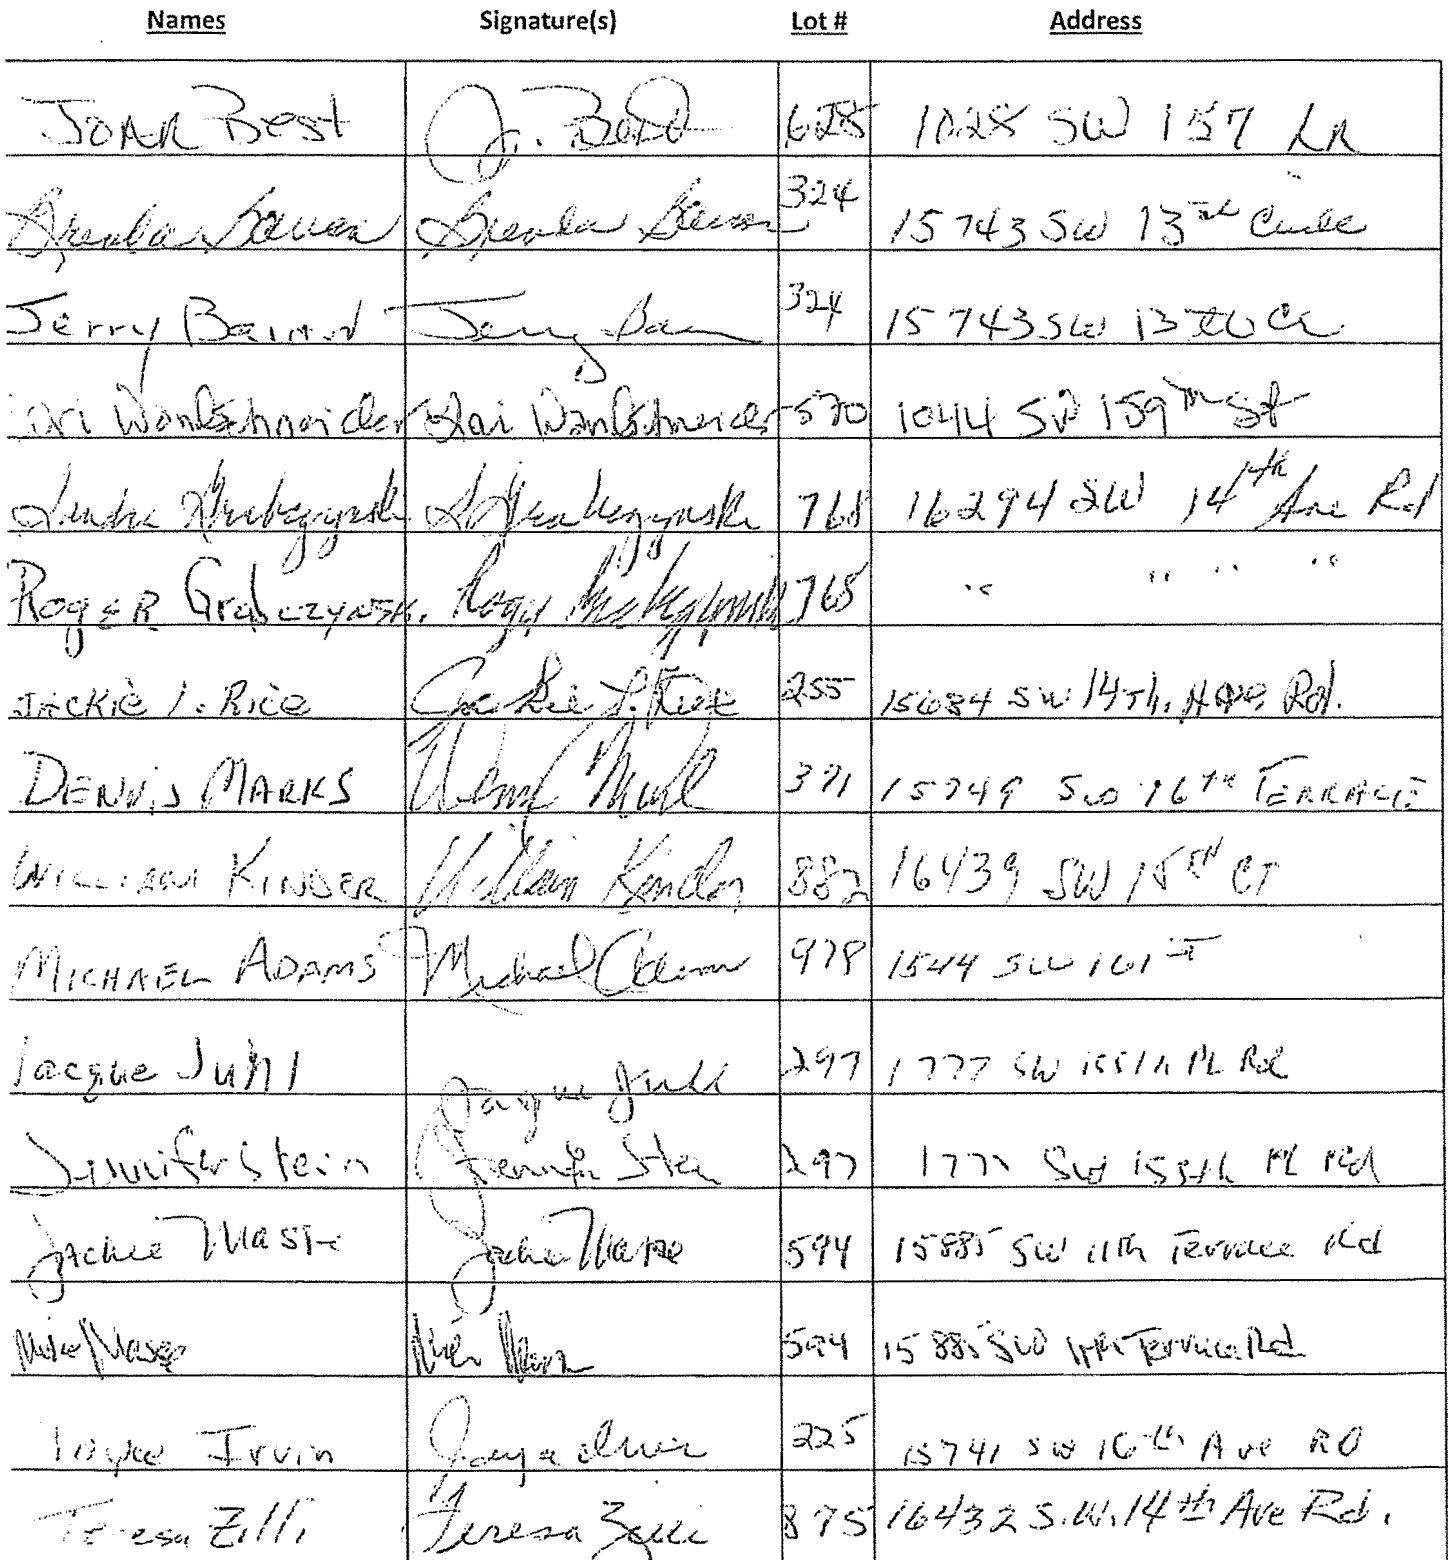 Names Signature(s) Lot # Address
Joan Best J. Best 628 1028 SW 157 Ln
Brenda Brenda 324 15743 SW 13th Circle
Jerry Jerry 324 15743 SW 13th Cr
570 1044 SW 159th St
768 16294 SW 14th Ave Rd
Roger Grabczynski Roger Grabczynski 768 " " " "
Jackie L. Rice Jackie L. Rice 255 15684 SW 14th. Ave. Rd.
Dennis Marks 371 15749 SW 16th Terrace
William Kinder William Kinder 882 16439 SW 15th CT
Michael Adams Michael Adams 978 1544 SW 161 st
Jacque Juhl Jacque Juhl 297 1777 SW 155th PL Rd
Jennifer Stein Jennifer Stein 297 1777 SW 155th PL Rd
Jackie Maske 594 15885 SW 11th Terrace Rd
Mike Mike 594 15885 SW 11th Terrace Rd
Irvin 225 15741 SW 16th Ave RD
Teresa Zilli Teresa Zilli 875 16432 S.W. 14th Ave Rd.